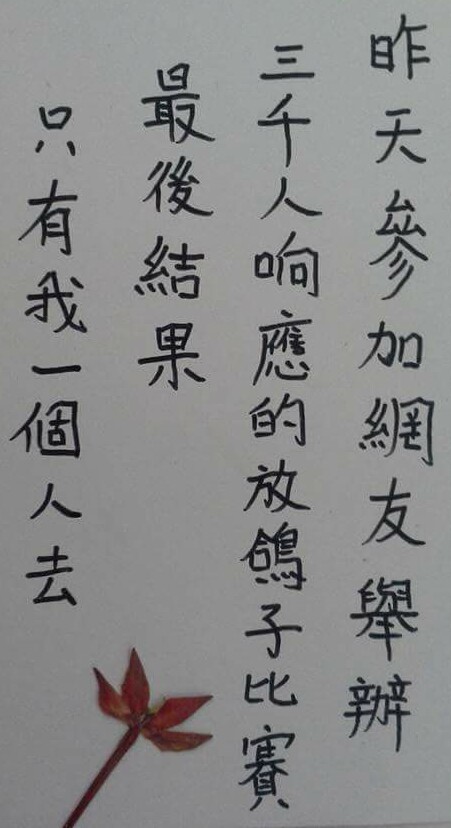 昨天參加網友舉辦
三千人响應的放鴿子比賽
最後結果
只有我一個人去